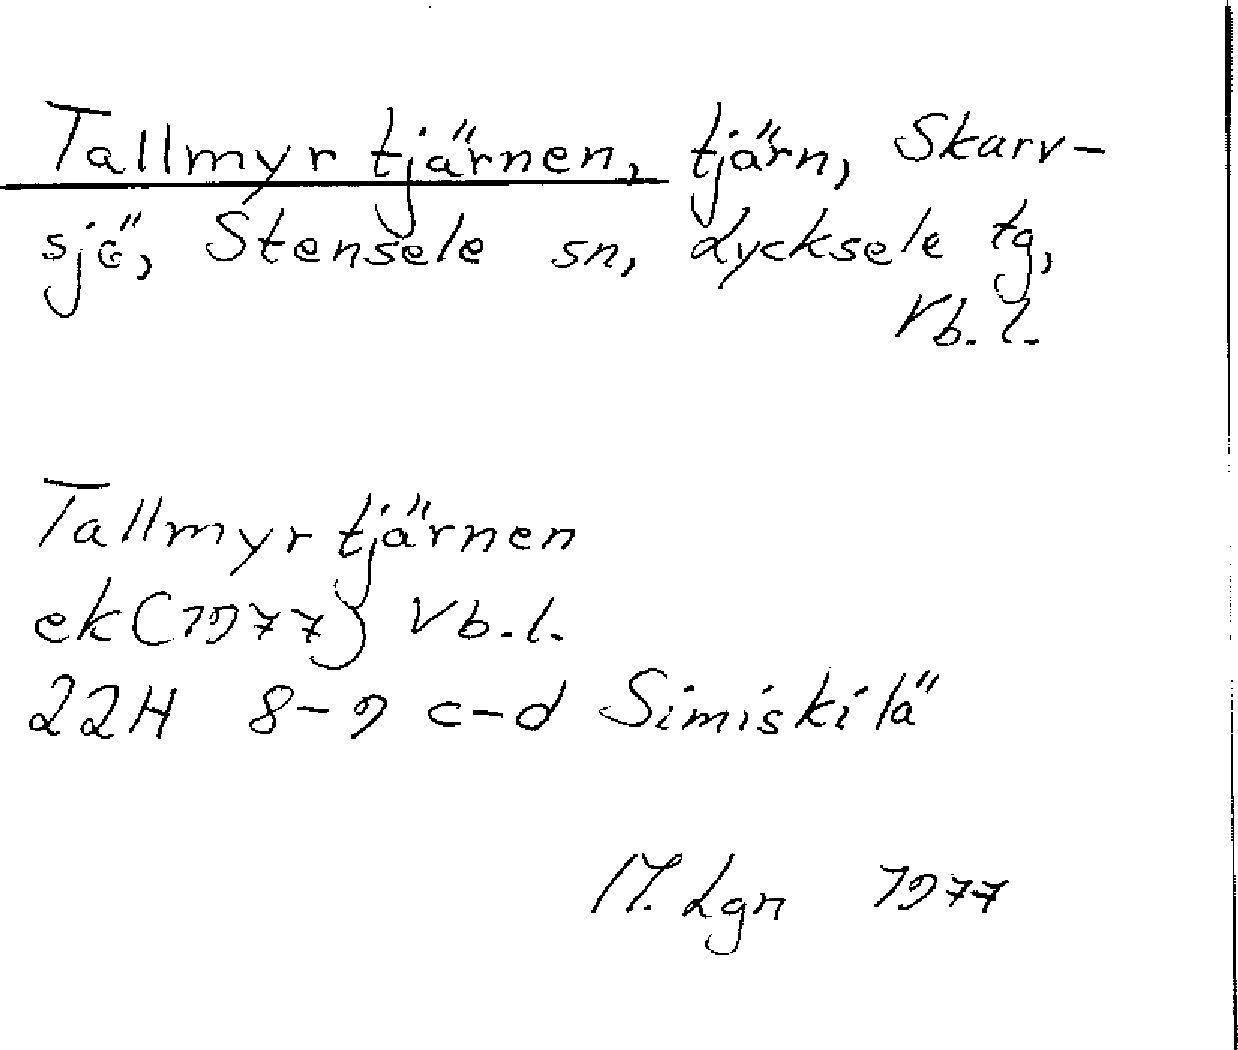 Tallmyrtjärnen, tjärn, Skarv-
sjö, Stensele sn, Lycksele tg,
Vb. l.
Tallmyrtjärnen
ek (1977) Vb. l.
22H 8-9 c-d Simiskilä
M. Lgn 1977